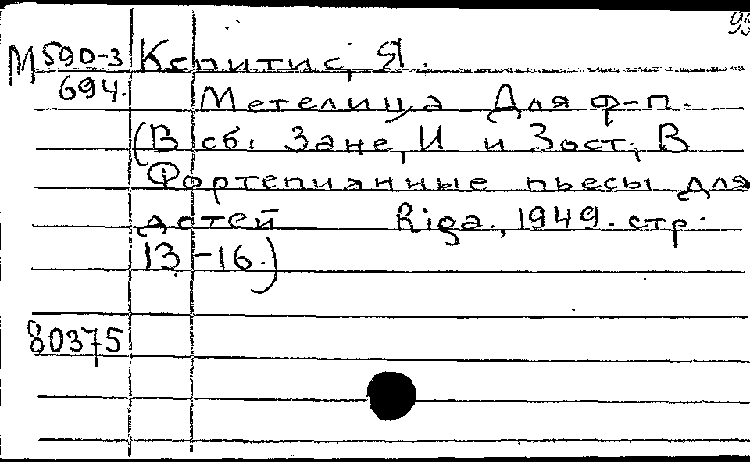 М 590-3 Кепитис, Я.
694. Метелица Для ф-п.
(В сб: Зане, И и Зост, В
Фортепианные пьесы для
детей Riga, 1949. стр.
13-16.)
80375